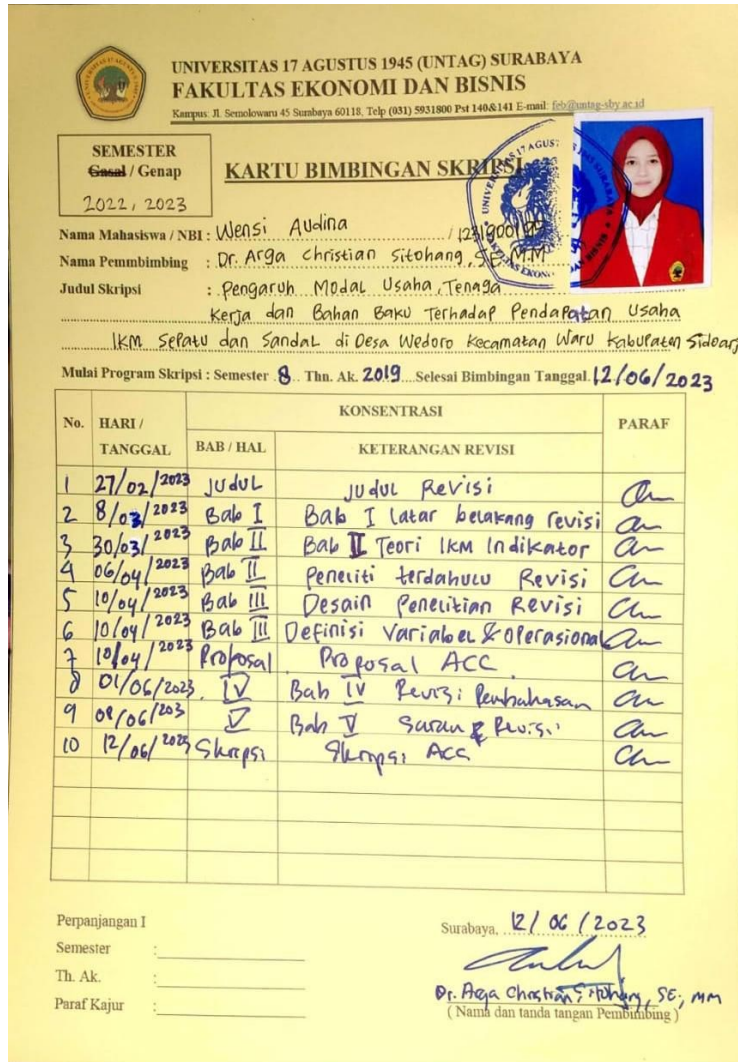 UNIVERSITAS 17 AGUSTUS 1945 (UNTAG) SURABAYA
FAKULTAS EKONOMI DAN BISNIS
Kampus: Jl. Semolowaru 45 Surabaya 60118, Telp (031) 5931800 Pst 140&141 E-mail: feb@untag-sby.ac.id
SEMESTER
Gasal / Genap
2022, 2023
KARTU BIMBINGAN SKRIPSI
Nama Mahasiswa / NBI : Wensi Audina / 1231900199
Nama Pemmbimbing : Dr. Arga Christian Sitohang, SE, M.M
Judul Skripsi : Pengaruh Modal Usaha, Tenaga
Kerja dan Bahan Baku Terhadap Pendapatan Usaha
IKM Sepatu dan Sandal di Desa Wedoro Kecamatan Waru Kabupaten Sidoarj
Mulai Program Skripsi : Semester 8 Thn. Ak. 2019 Selesai Bimbingan Tanggal 12/06/2023
No. HARI / TANGGAL KONSENTRASI PARAF
BAB / HAL KETERANGAN REVISI
1 27/02/2023 Judul Judul Revisi
2 8/03/2023 Bab I Bab I latar belakang revisi
3 30/03/2023 Bab II Bab II Teori IKM Indikator
4 06/04/2023 Bab II Peneliti terdahulu Revisi
5 10/04/2023 Bab III Desain Penelitian Revisi
6 10/04/2023 Bab III Definisi Variabel & Operasional
7 10/04/2023 Proposal Proposal ACC
8 01/06/2023 IV Bab IV Revisi Pembahasan
9 08/06/203 V Bab V Saran & Revisi
10 12/06/2023 Skripsi Skripsi ACC
Perpanjangan I
Semester :
Th. Ak. :
Paraf Kajur :
Surabaya, 12/06/2023
Dr. Arga Christian Sitohang, SE, MM
( Nama dan tanda tangan Pembimbing )